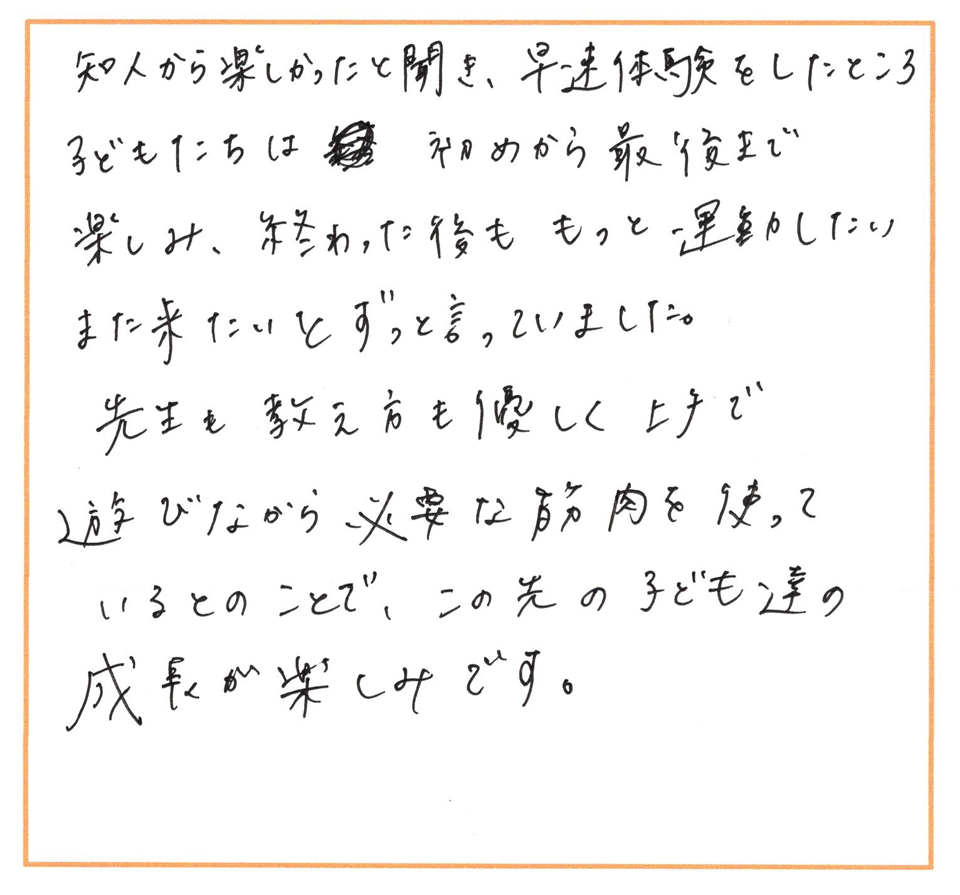 知人から楽しかったと聞き、早速体験をしたところ
子どもたちは 初めから最後まで
楽しみ、終わった後も もっと運動したい
また来たいとずっと言っていました。
先生も教え方も優しく上手で
遊びながら必要な筋肉を使って
いるとのことで、この先の子ども達の
成長が楽しみです。